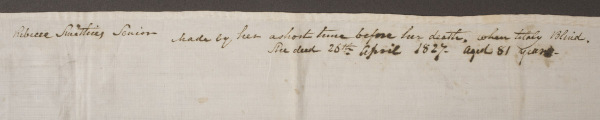 Rebecca Smithies Senior Made by her a short time before her death, when totaly Blind.
She died 28th April 1827- Aged 81 years-